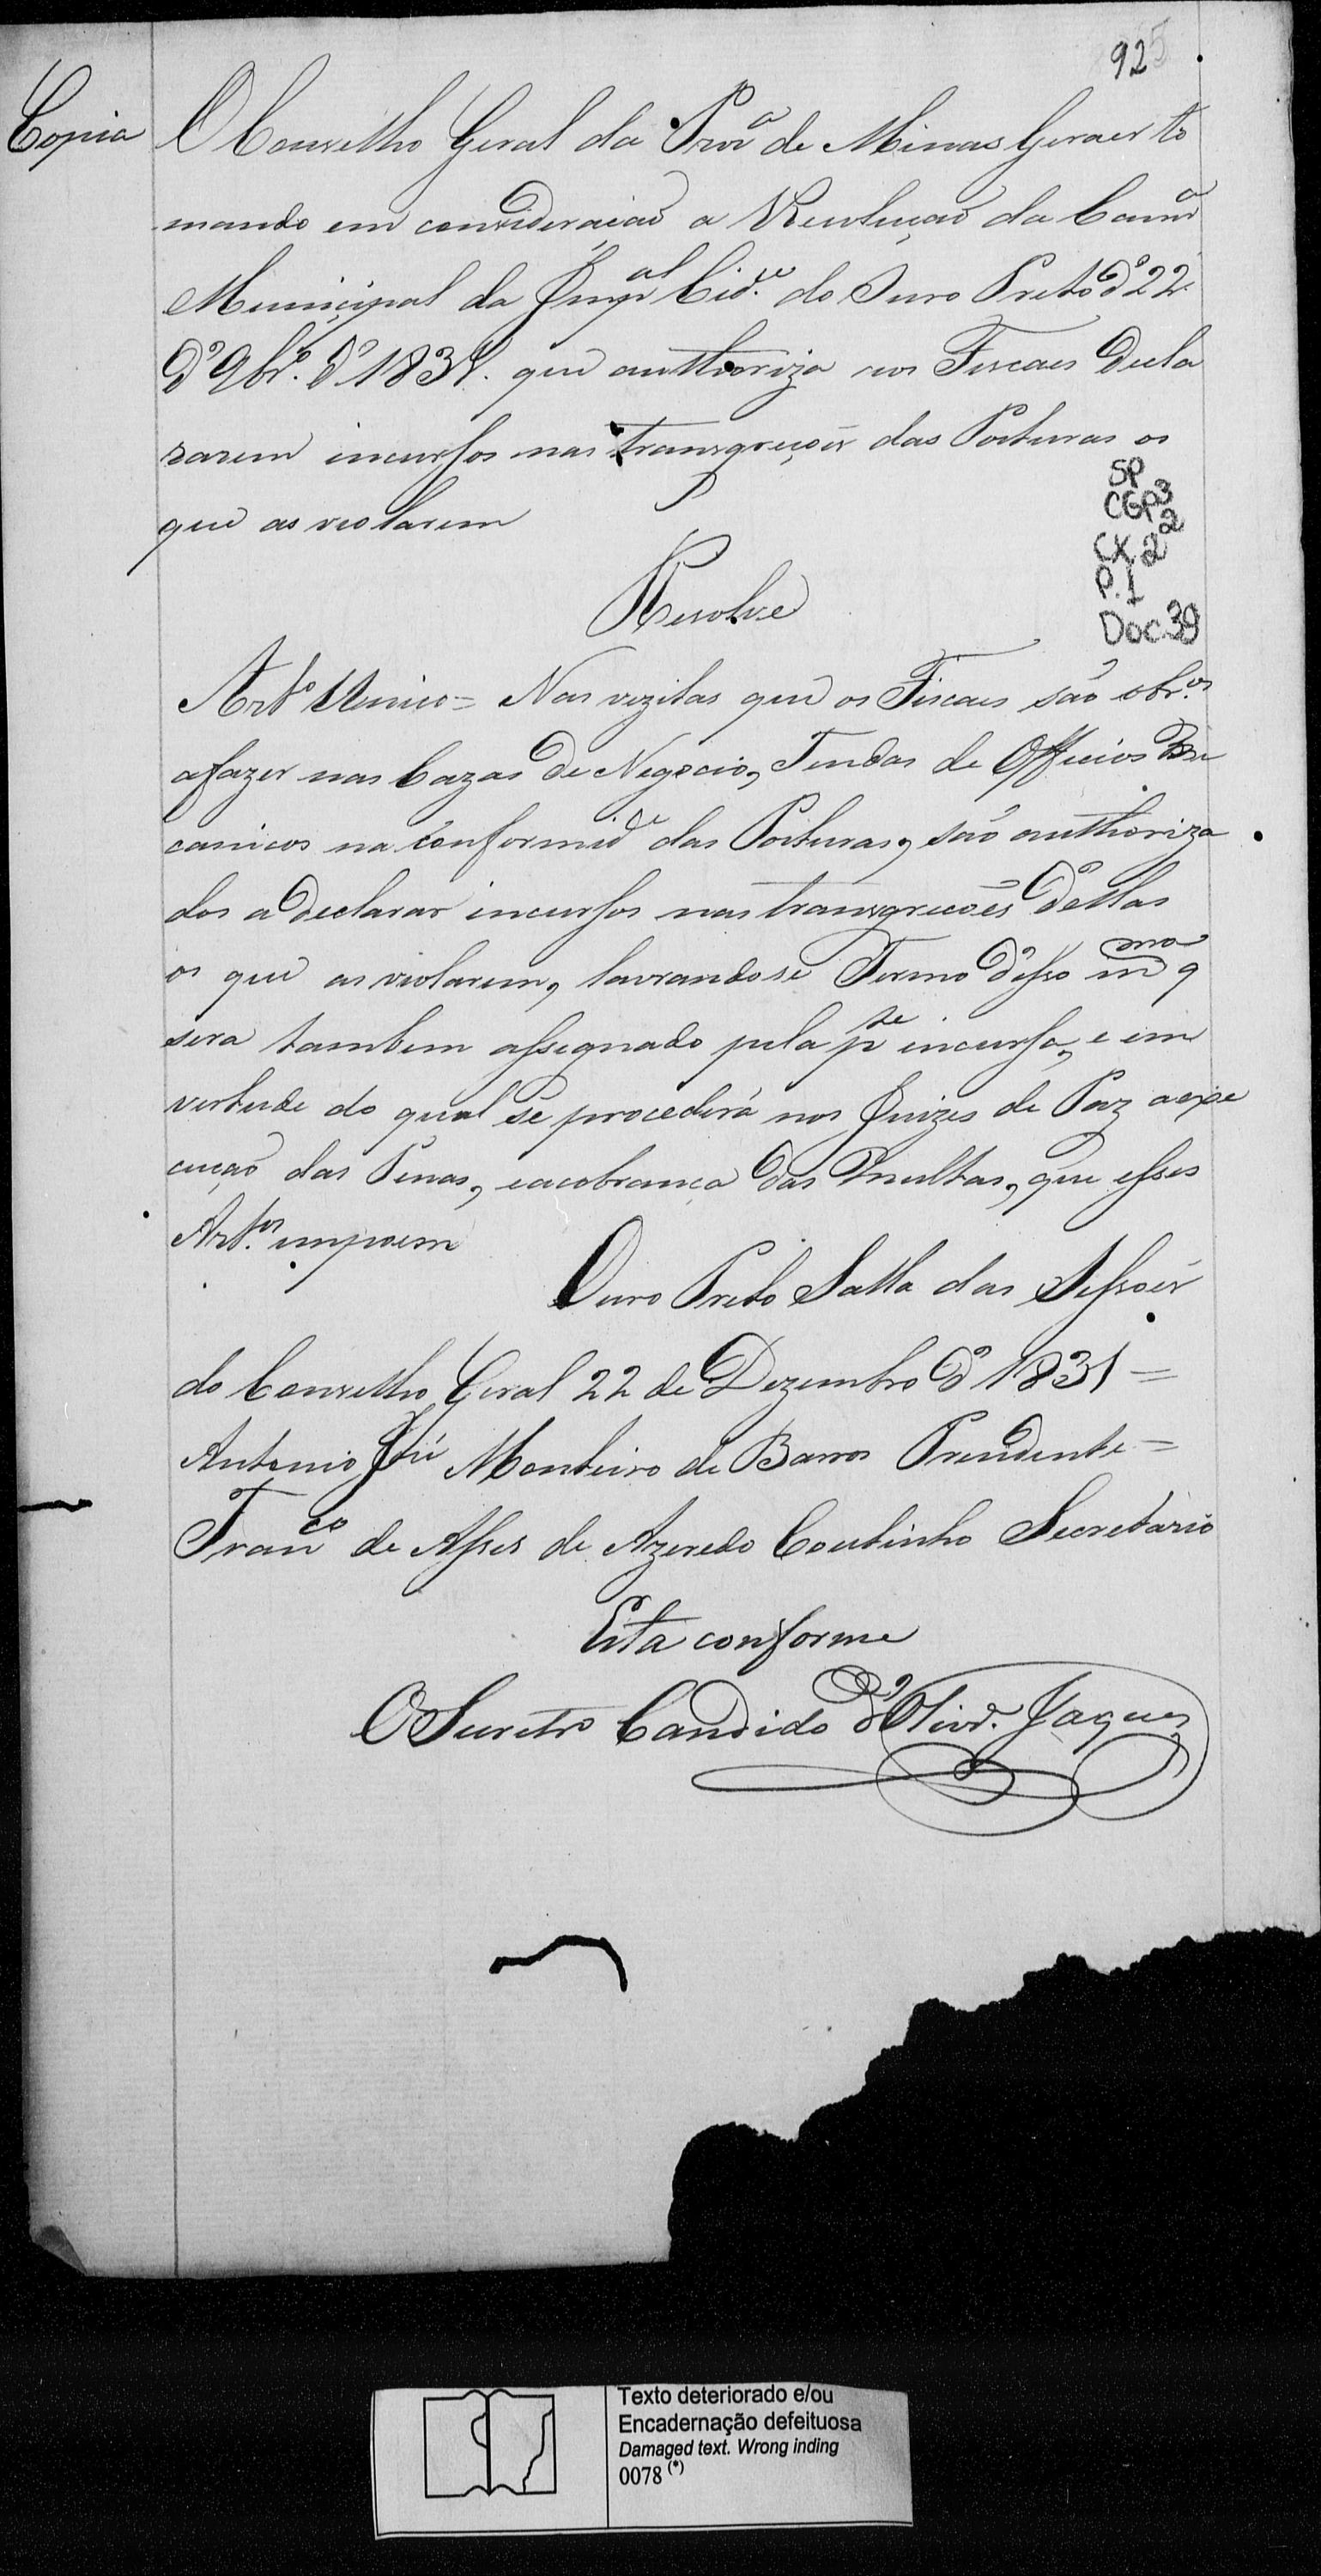 925
Copia
O Conselho Geral da Prov.a de Minas Geraes to
mando em consideração a Resolução da Camr.a
Municipal da Imp.al Cid.e do Ouro Preto d' 22
d' 9br.o d' 1831. que authoriza aos Fiscaes decla
rarem incursos nas transgreções das Posturas os
que as violarem
SP
CGP3
CX.2 2
P.1
Doc.39
Resolve
Art.o Unico = Nas vizitas que os Fiscaes são obr.os
a fazer nas Cazas de Negocio, Tendas de Officios Me
canicos na conformid.e das Posturas, são authoriza
dos a declarar incursos nas transgrecões dellas
os que as violarem, lavrandose Termo d'isso m.mo q
sera tambem assignado pela p.te incursa, e em
vertude do qual se procederá nos Juizes de Paz a exe
cução das Penas, e a cobrança das Multas, que esses
Art.os impoem
Ouro Preto Salla das Sessoes
do Conselho Geral 22 de Dezembro d' 1831 =
Antonio José Monteiro de Barros Presidente =
Fran.co de Asses de Azeredo Coutinho Secretario
Esta conforme
O Secretr.o Candido d' Olivr.a Jaques
Texto deteriorado e/ou
Encadernação defeituosa
Damaged text. Wrong inding
0078 (*)